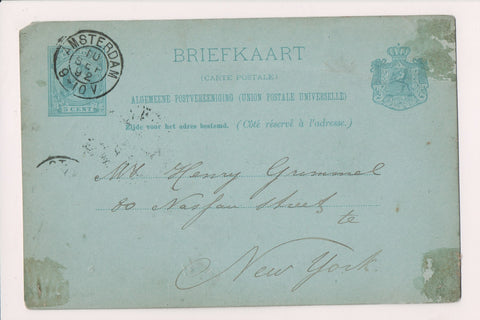 AMSTERDAM
10
SEP
92
9-10V
5 CENT
BRIEFKAART
(CARTE POSTALE)
ALGEMEENE POSTVEREENIGING (UNION POSTALE UNIVERSELLE)
Zijde voor het adres bestemd. (Côté réservé à l'adresse.)
Mr. Henry Grimmel
80 Nassau Street
te
New York.